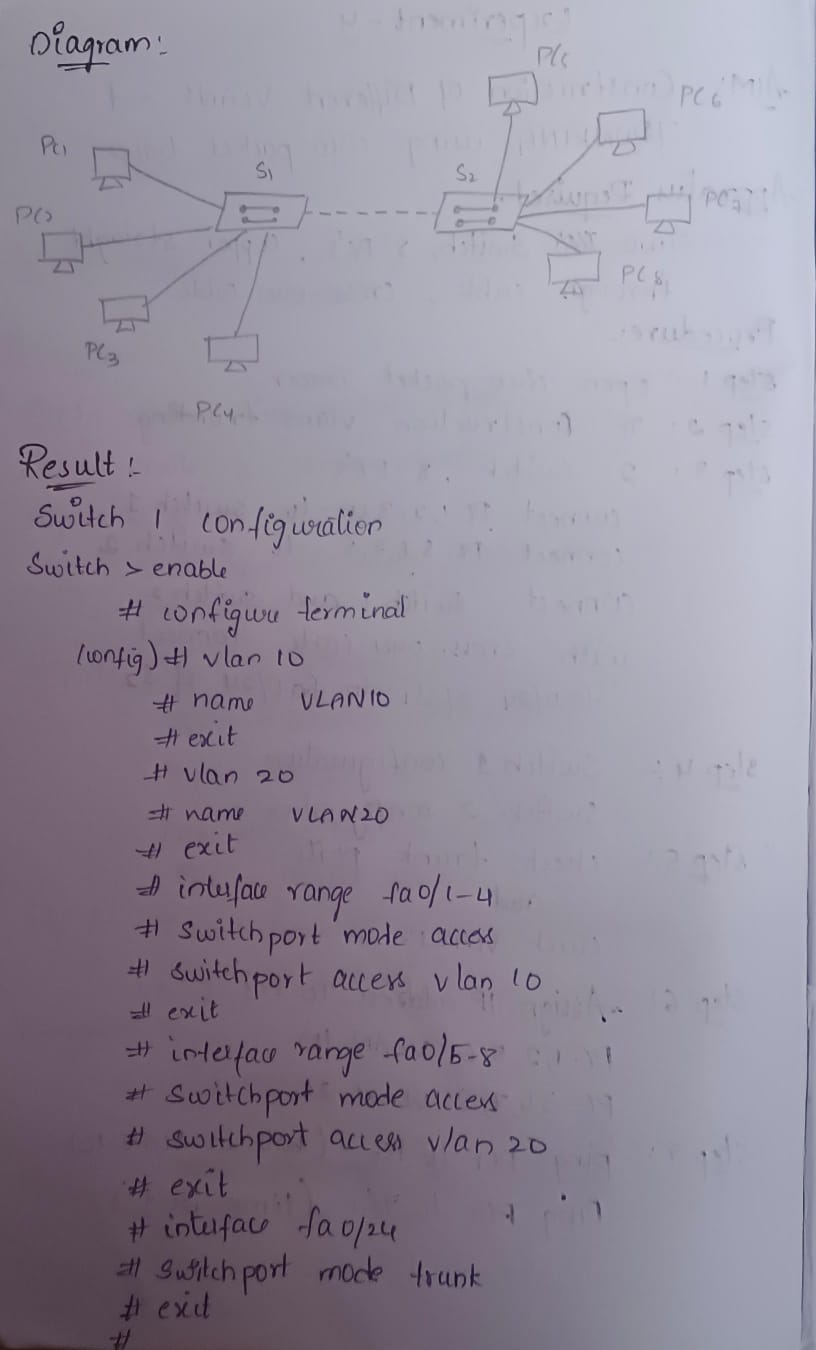 Diagram:
PC5
PC6
PC1
S1
S2
PC2
PC7
PC8
PC3
PC4
Result:
Switch 1 configuration
Switch > enable
# configure terminal
(config) # vlan 10
# name VLAN10
# exit
# vlan 20
# name VLAN20
# exit
# interface range fa0/1-4
# switchport mode access
# switchport access vlan 10
# exit
# interface range fa0/5-8
# switchport mode access
# switchport access vlan 20
# exit
# interface fa0/24
# switchport mode trunk
# exit
#